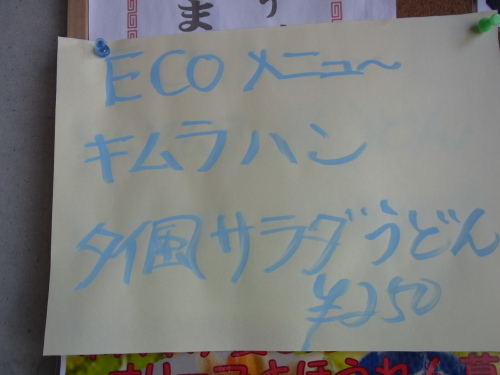 ECOメニュ〜
キムラハン
タイ風サラダうどん
¥250